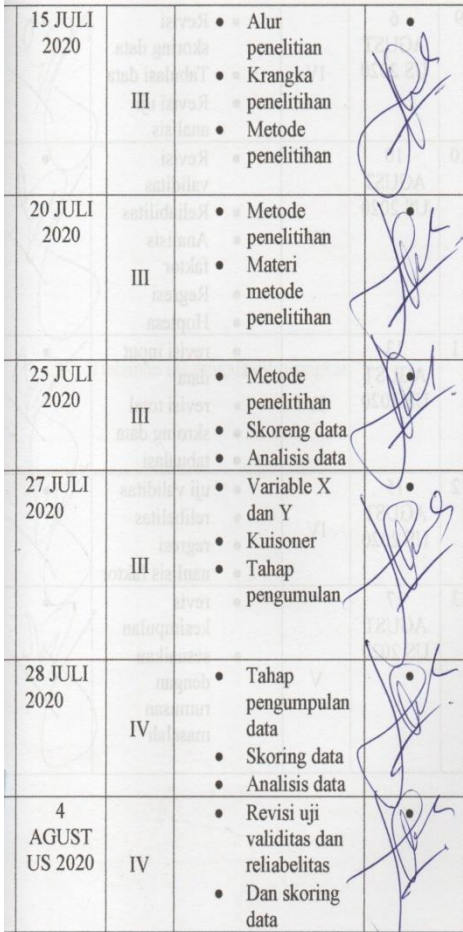 15 JULI
2020
III
• Alur
penelitian
• Krangka
penelitihan
• Metode
penelitihan
20 JULI
2020
III
• Metode
penelitihan
• Materi
metode
penelitihan
25 JULI
2020
III
• Metode
penelitihan
• Skoreng data
• Analisis data
27 JULI
2020
III
• Variable X
dan Y
• Kuisoner
• Tahap
pengumulan
28 JULI
2020
IV
• Tahap
pengumpulan
data
• Skoring data
• Analisis data
4
AGUST
US 2020
IV
• Revisi uji
validitas dan
reliabelitas
• Dan skoring
data